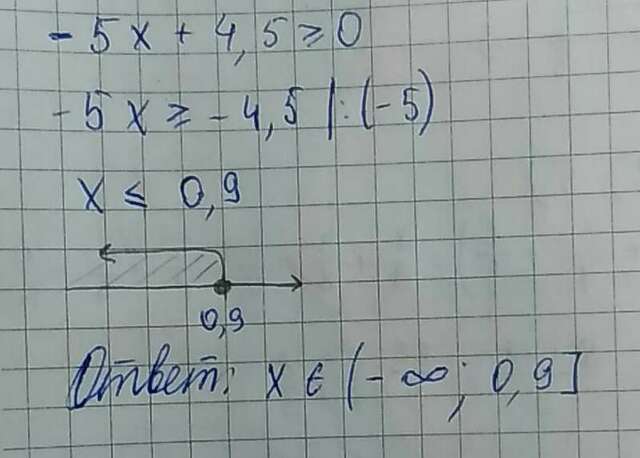 - 5x + 4,5 ≥ 0
- 5x ≥ - 4,5 |:(-5)
x ≤ 0,9
0,9
Ответ: x ∈ (- ∞; 0,9]